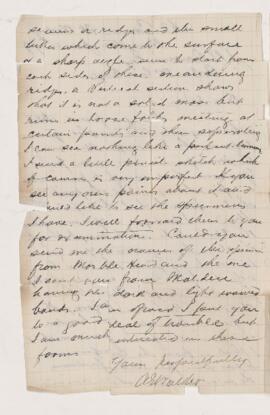 seams or ridges and the small
tubes which come to the surface
at a sharp angle seem to start from
each side of these meandering
ridges. a Vertical section shows
that it is not a solid mass but
runs in loose folds meeting at
certain points and then separating
I can see nothing like a
I send a little pencil sketch which
of course is very imperfect. If you
see any new points about it and
would like to see the specimens
I have, I will forward them to you
for examination. Could you
send me the names of the
from Marble Head and the one
I sent you from Malden
having the dark and light waved
bands. I am afraid I put you
to a good deal of trouble but
I am much interested in these
forms
Yours respectfully